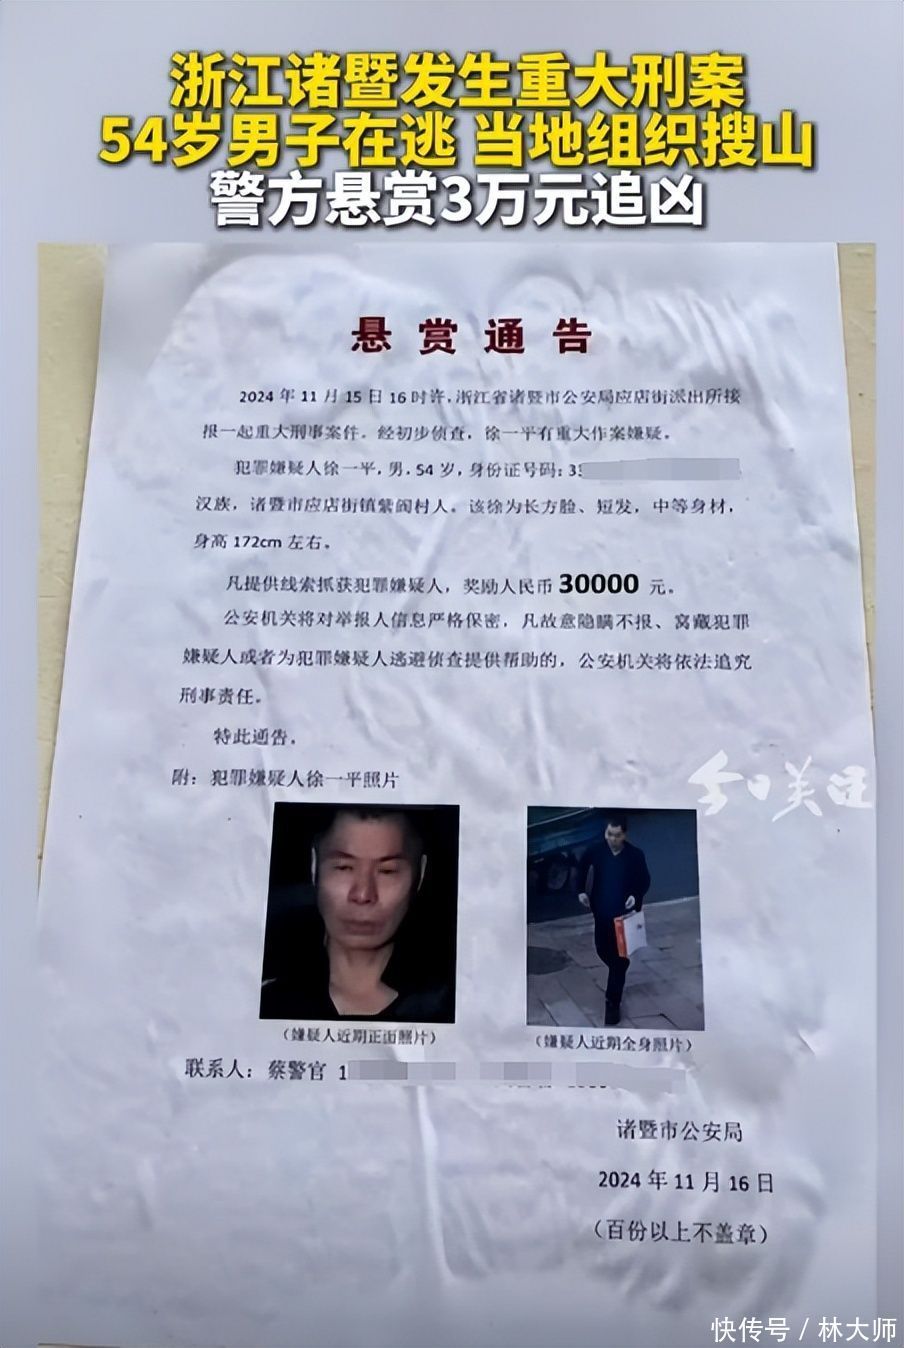 浙江诸暨发生重大刑案
54岁男子在逃 当地组织搜山
警方悬赏3万元追凶
悬赏通告
2024年11月15日16时许,浙江省诸暨市公安局应店街派出所接
报一起重大刑事案件。经初步侦查，徐一平有重大作案嫌疑。
犯罪嫌疑人徐一平,男,54岁,身份证号码:33
汉族，诸暨市应店街镇紫阆村人。该徐为长方脸、短发，中等身材，
身高172cm左右。
凡提供线索抓获犯罪嫌疑人，奖励人民币30000元。
公安机关将对举报人信息严格保密，凡故意隐瞒不报、窝藏犯罪
嫌疑人或者为犯罪嫌疑人逃避侦查提供帮助的，公安机关将依法追究
刑事责任。
特此通告。
附：犯罪嫌疑人徐一平照片
今日关注
（嫌疑人近期正面照片）
（嫌疑人近期全身照片）
联系人：蔡警官 1
诸暨市公安局
2024年11月16日
（百份以上不盖章）
快传号/林大师